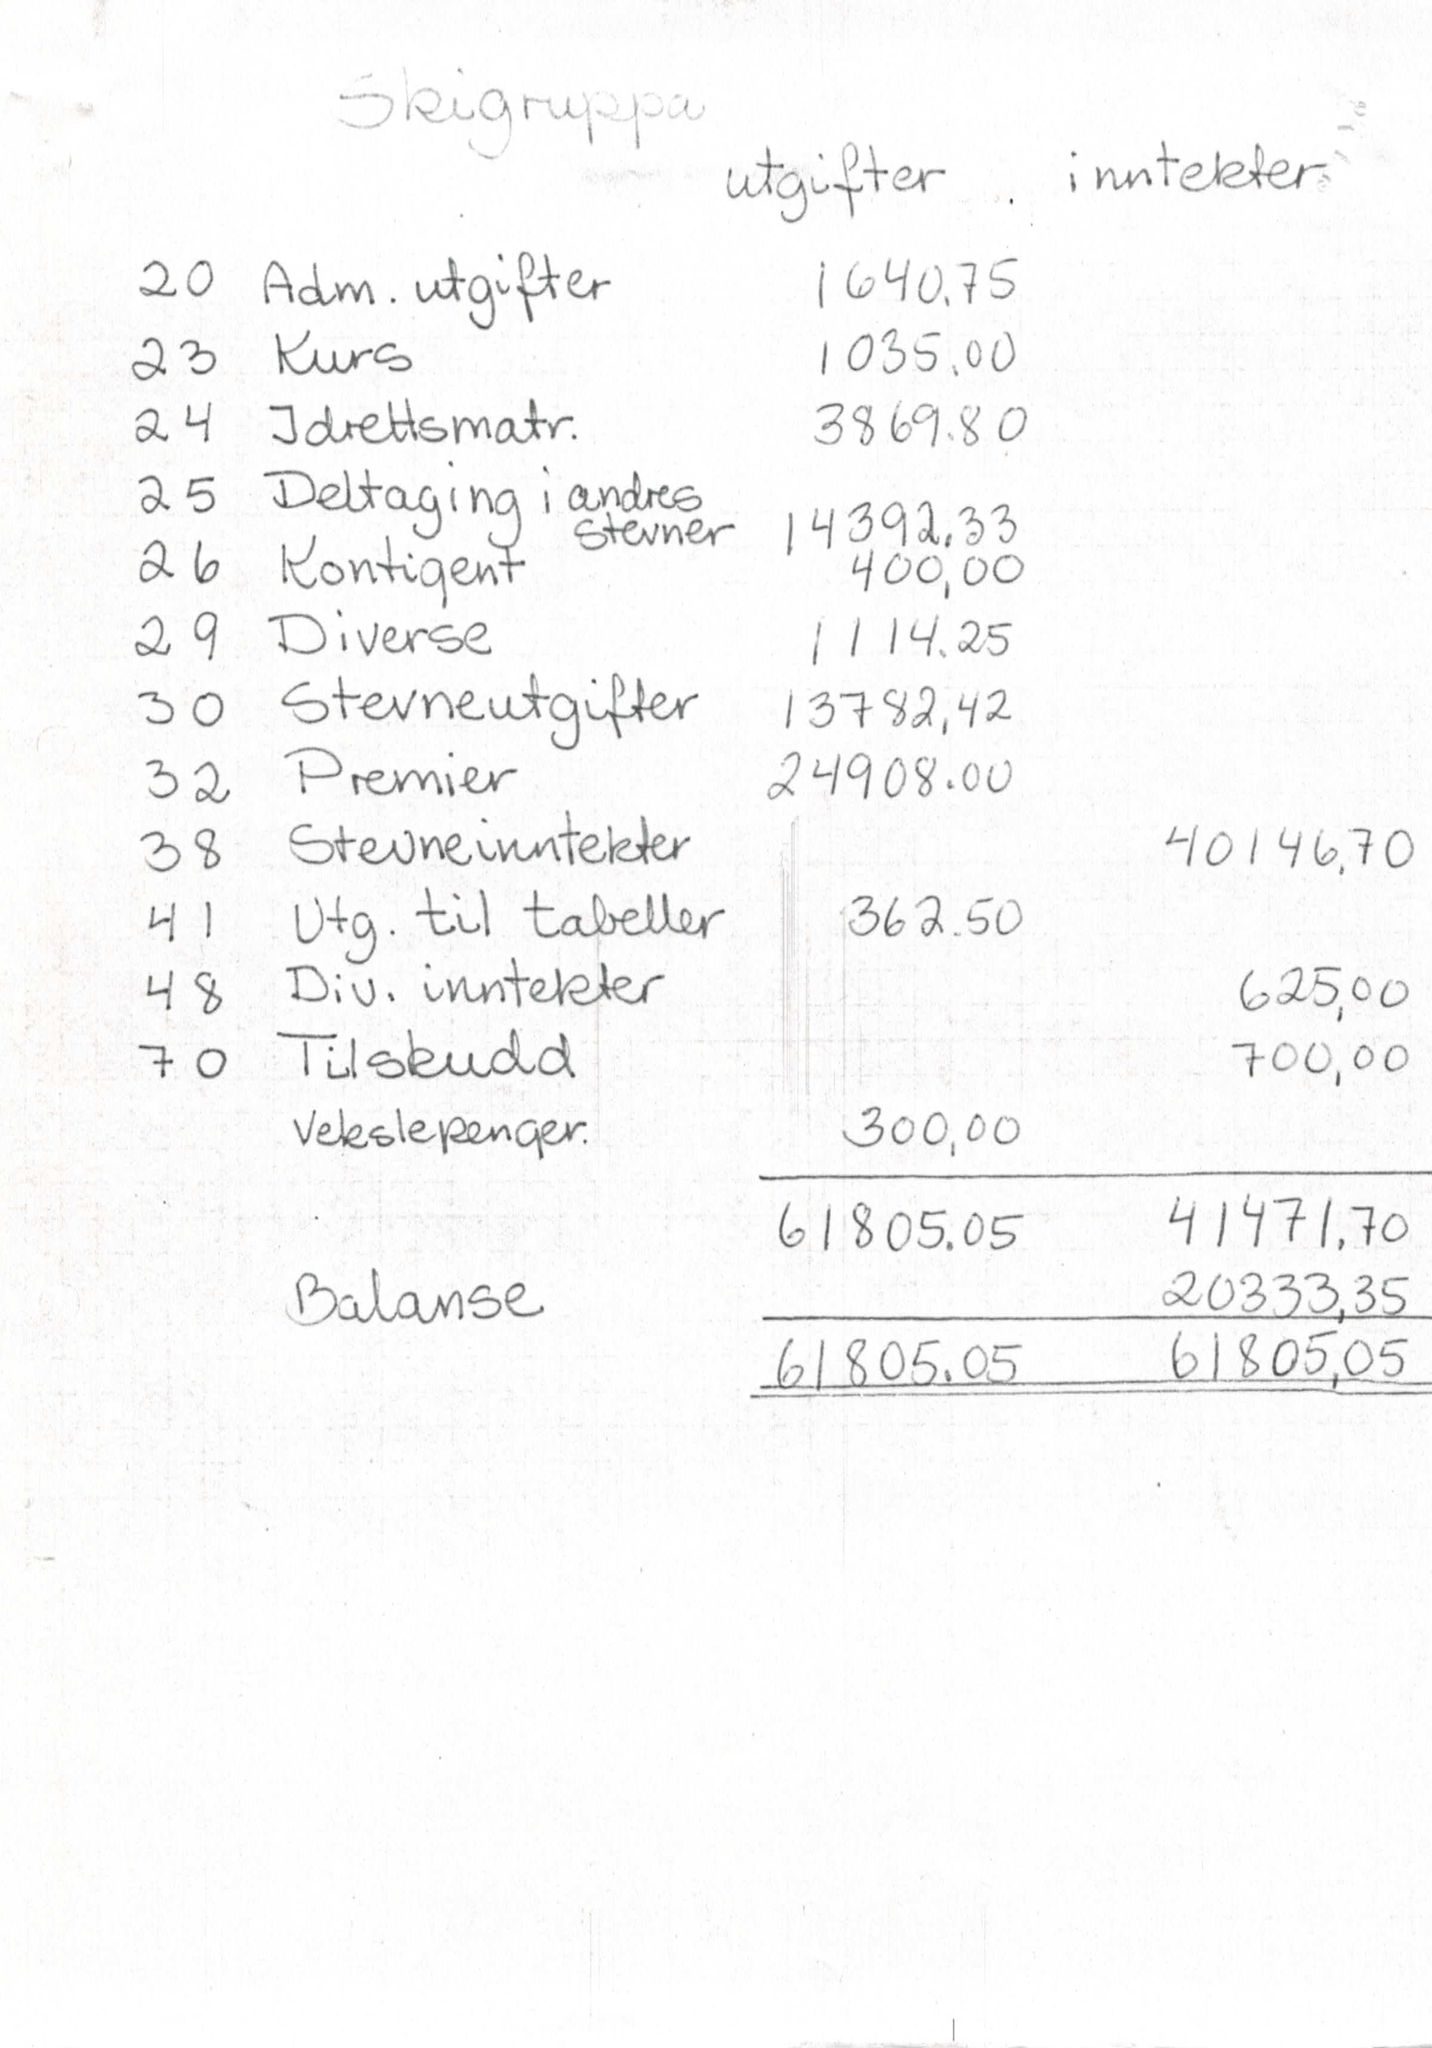 Skigruppa
utgifter inntekter
20 Adm. utgifter 1640.75
23 Kurs 1035.00
24 Idrettsmatr. 3869.80
25 Deltaging i andres
stevner 14392.33
26 Kontigent 400,00
29 Diverse 1114.25
30 Stevneutgifter 13782,42
32 Premier 24908.00
38 Stevneinntekter 40146,70
41 Utg. til tabeller 362.50
48 Div. inntekter 625,00
70 Tilskudd 700,00
Vekslepenger. 300,00
61805.05 41471,70
Balanse 20333,35
61805.05 61805,05